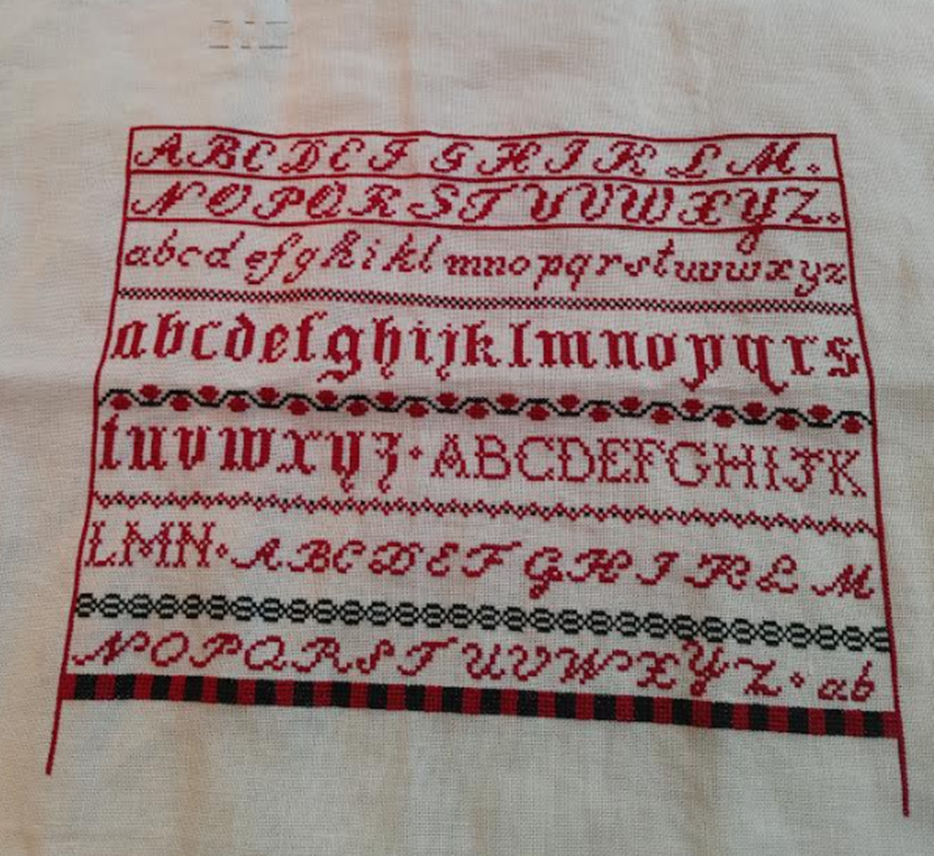 ABCDEFGHIKLM.
NOPQRSTUVWXYZ.
abcdefghiklmnopqrstuvwxyz
abcdefghijklmnopqrs
tuvwxyz·ABCDEFGHIJK
LMN·ABCDEFGHIKLM
NOPQRSTUVWXYZ·ab